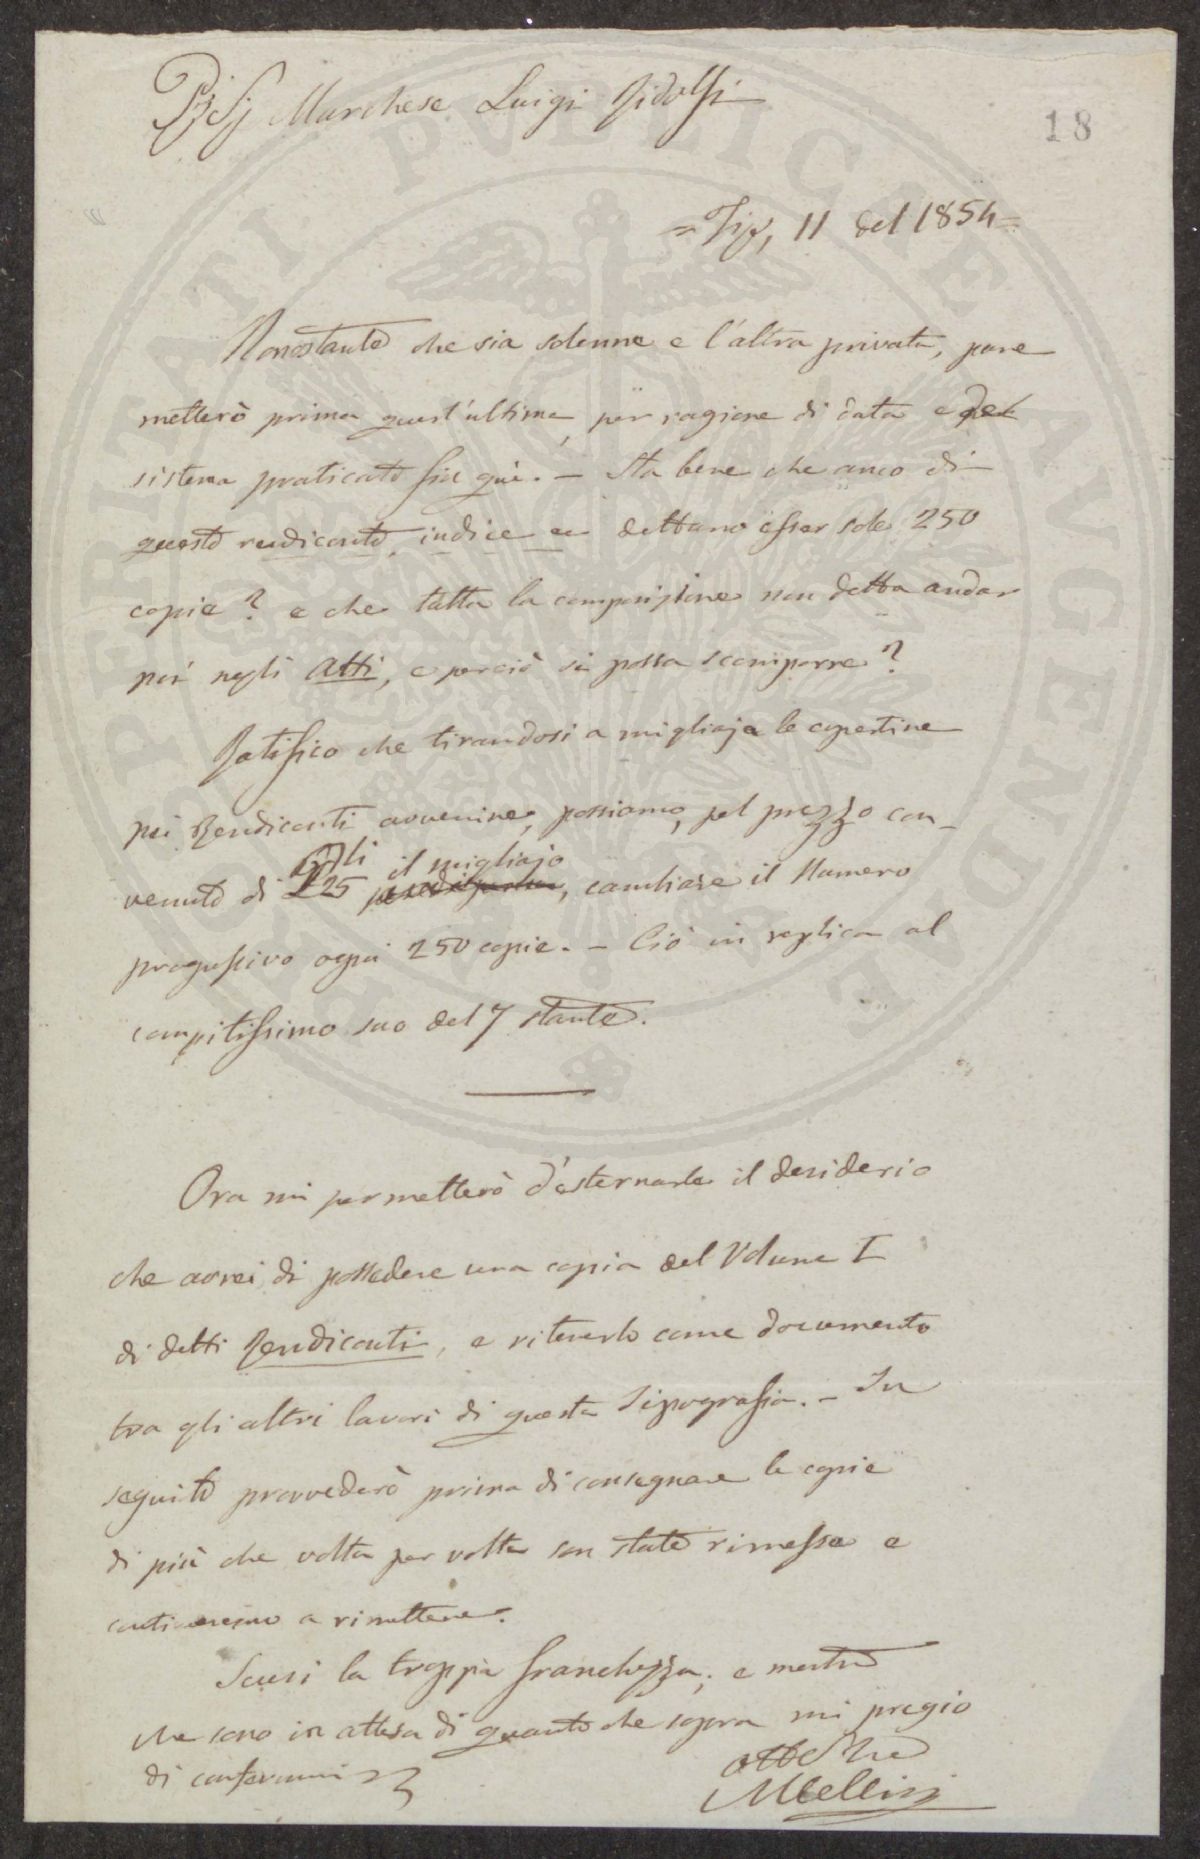 Sig Marchese Luigi Ridolfi
18
= Tip, 11 del 1854 =
Nonostante che sia solenne e l'altra privata, pure
metterò prima quest'ultima, per ragione di data e del
sistema praticato fin quì. – Sta bene che anco di
questo rendiconto, indice ec debbano esser sole 250
copie? e che tutta la composizione non debba andar
poi negli Atti, e perciò si possa scomporre?
Ratifico che tirandosi a migliaja le copertine
pei Rendiconti avvenire, possiamo, pel prezzo con-
il migliajo
venuto di 25, cambiare il Numero
progressivo ogni 250 copie. – Ciò in replica al
compitissimo suo del 7 stante.
Ora mi permetterò d'esternarle il desiderio
che avrei di possedere una copia del Volume I
di detti Rendiconti, e ritenerlo come documento
tra gli altri lavori di questa Tipografia. – In
seguito provvederò prima di consegnare le copie
di più che volta per volta son state rimesse e
continueremo a rimettere.
Scusi la troppa franchezza, e mentre
che sono in attesa di quanto che sopra mi pregio
di confermarmi
MCellini
PROSPERITATI PVBLICAE AVGENDAE